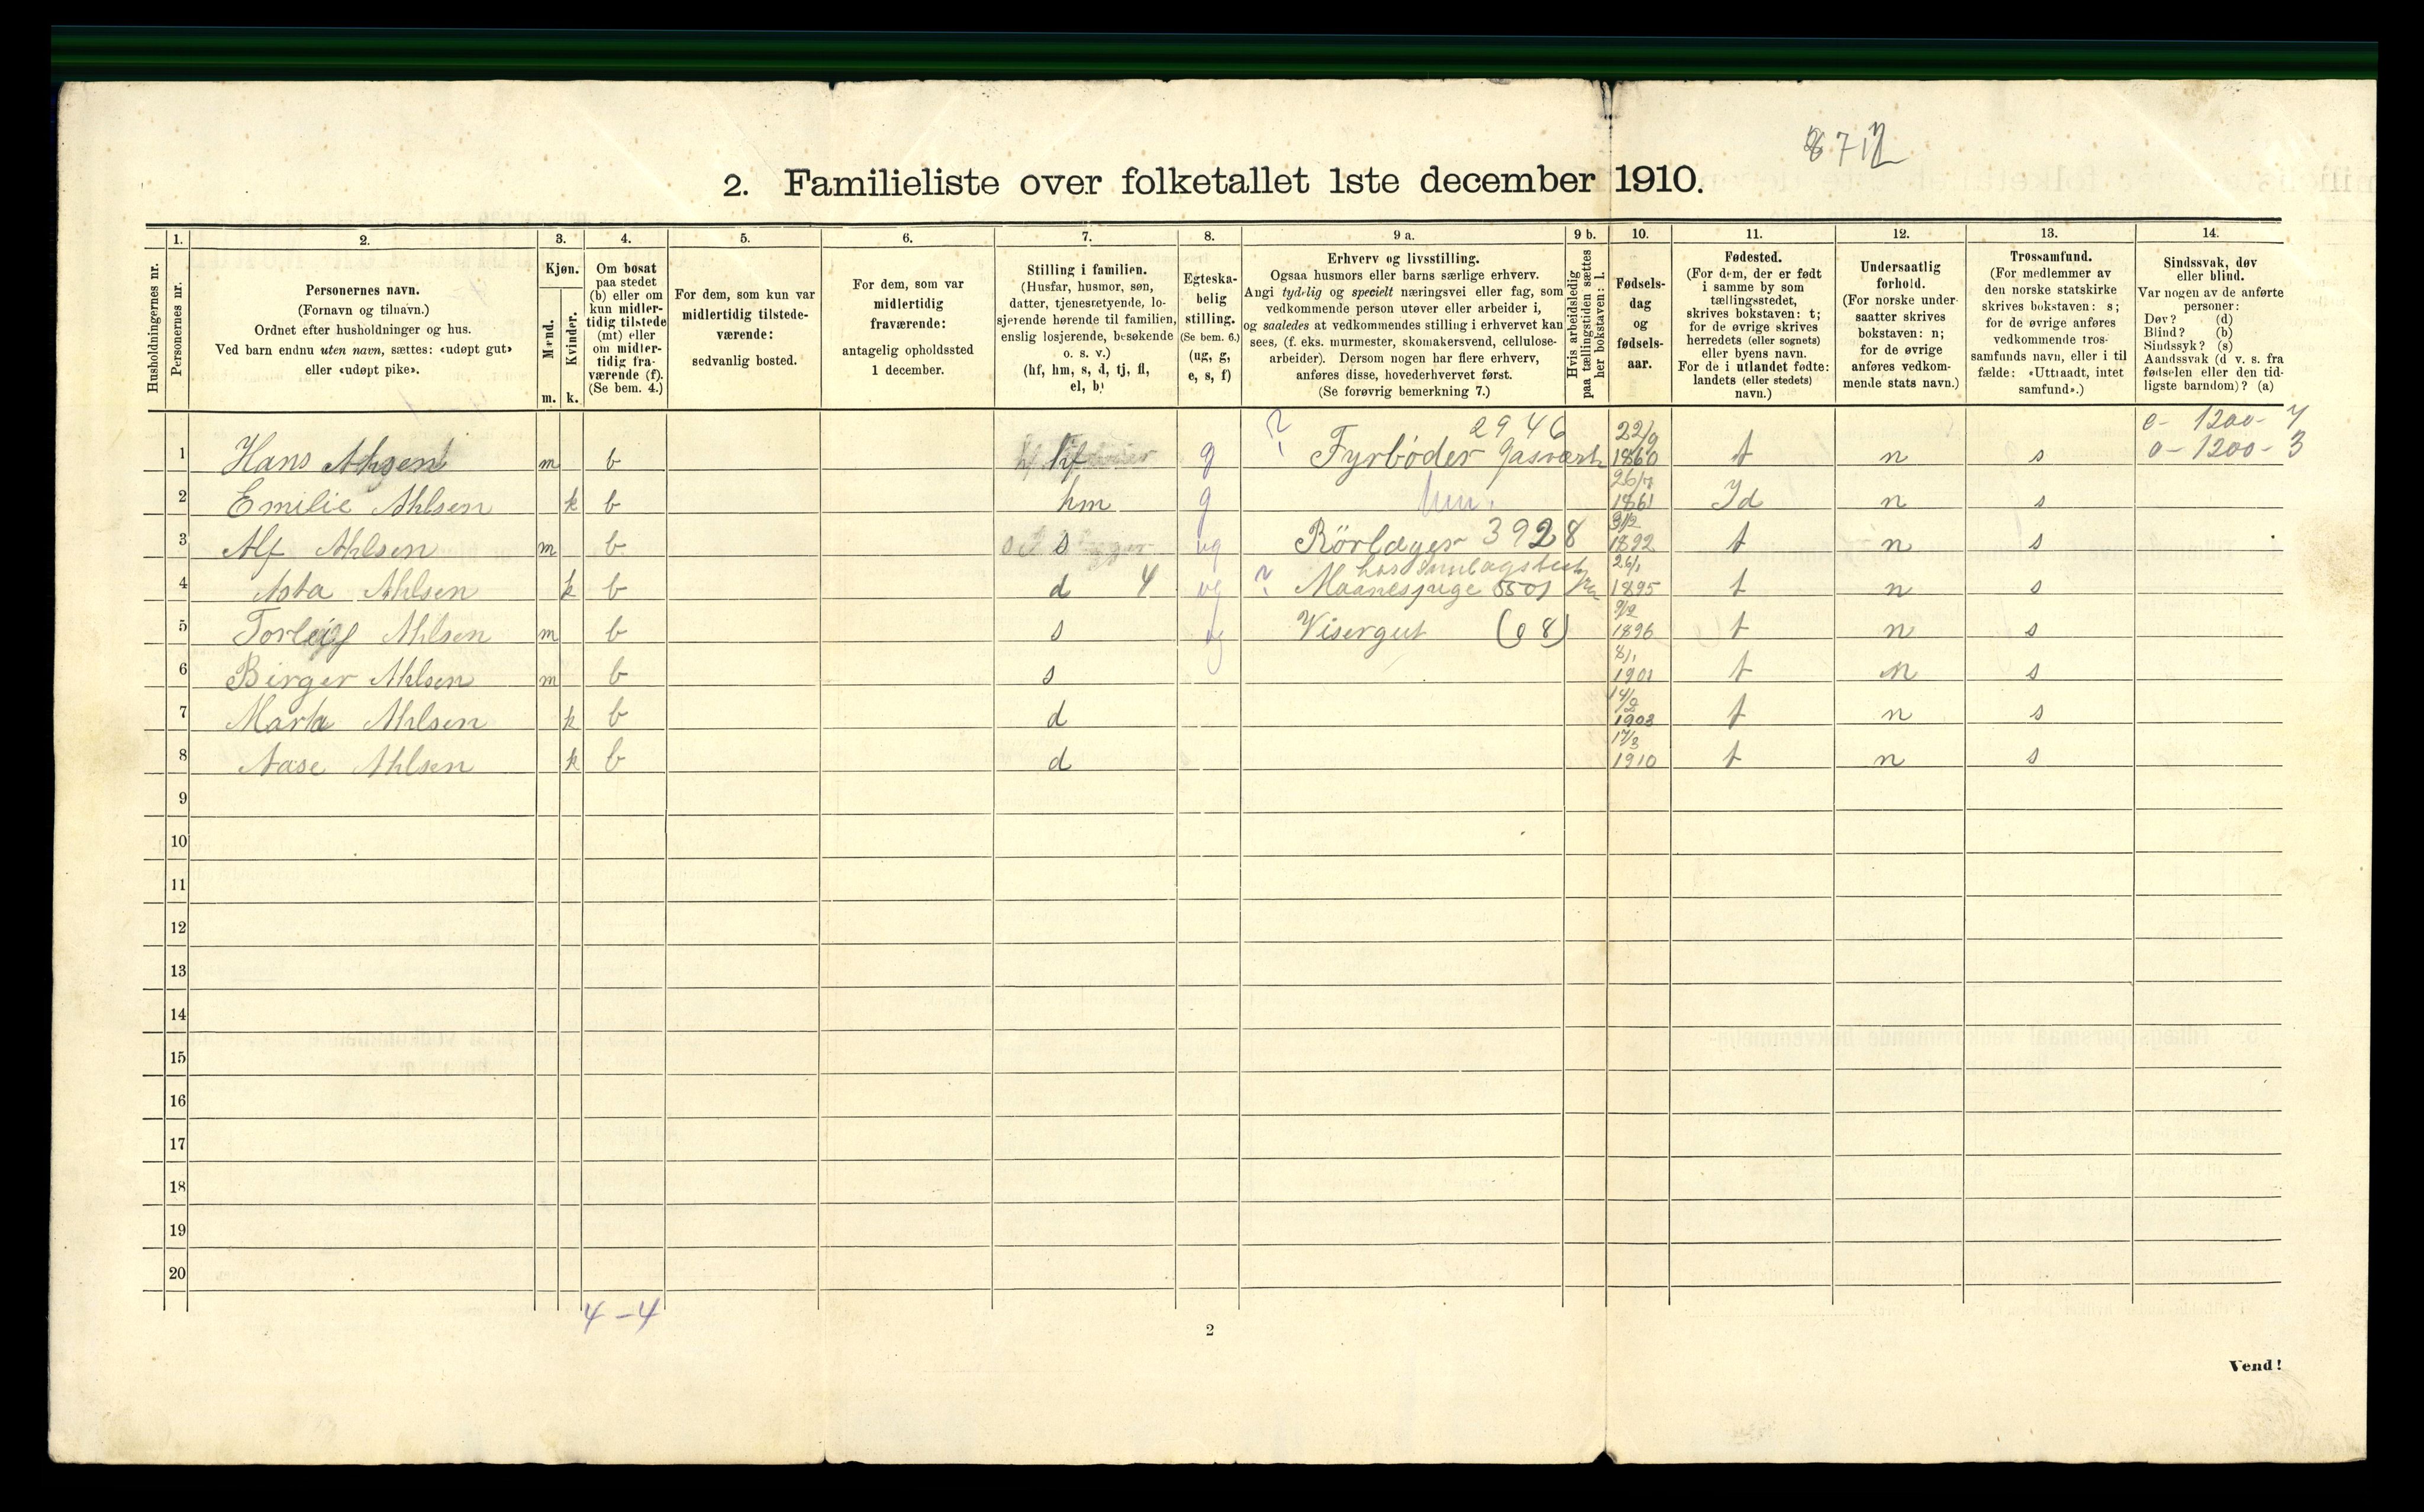 8712
2. Familieliste over folketallet 1ste december 1910.
Husholdningernes nr.
1.
Personernes nr.
2.
Personernes navn.
(Fornavn og tilnavn.)
Ordnet efter husholdninger og hus.
Ved barn endnu uten navn, sættes: «udøpt gut»
eller «udøpt pike».
3.
Kjøn.
Mænd.
Kvinder.
m. k.
4.
Om bosat
paa stedet
(b) eller om
kun midler-
tidig tilstede
(mt) eller
om midler-
tidig fra-
værende (f).
(Se bem. 4.)
5.
For dem, som kun var
midlertidig tilstede-
værende:
sedvanlig bosted.
6.
For dem, som var
midlertidig
fraværende:
antagelig opholdssted
1 december.
7.
Stilling i familien.
(Husfar, husmor, søn,
datter, tjenestetyende, lo-
sjerende hørende til familien,
enslig losjerende, besøkende
o. s. v.)
(hf, hm, s, d, tj, fl,
el, b)
8.
Egteska-
belig
stilling.
(Se bem. 6.)
(ug, g,
e, s, f)
9 a.
Erhverv og livsstilling.
Ogsaa husmors eller barns særlige erhverv.
Angi tydelig og specielt næringsvei eller fag, som
vedkommende person utøver eller arbeider i,
og saaledes at vedkommendes stilling i erhvervet kan
sees, (f. eks. murmester, skomakersvend, cellulose-
arbeider). Dersom nogen har flere erhverv,
anføres disse, hovederhvervet først.
(Se forøvrig bemerkning 7.)
9 b.
Hvis arbeidsledig
paa tællingstiden sættes
her bokstaven: l.
10.
Fødsels-
dag
og
fødsels-
aar.
11.
Fødested.
(For dem, der er født
i samme by som
tællingsstedet,
skrives bokstaven: t;
for de øvrige skrives
herredets (eller sognets)
eller byens navn.
For de i utlandet fødte:
landets (eller stedets)
navn.)
12.
Undersaatlig
forhold.
(For norske under-
saatter skrives
bokstaven: n;
for de øvrige
anføres vedkom-
mende stats navn.)
13.
Trossamfund.
(For medlemmer av
den norske statskirke
skrives bokstaven: s;
for de øvrige anføres
vedkommende tros-
samfunds navn, eller i til-
fælde: «Uttraadt, intet
samfund».)
14.
Sindssvak, døv
eller blind.
Var nogen av de anførte
personer:
Døv? (d)
Blind? (b)
Sindssyk? (s)
Aandssvak (d v. s. fra
fødselen eller den tid-
ligste barndom)? (a)
0- 1200- 4
1 Hans Ahlsen m b hf g ? Fyrbøder Gasverk 2946 22/9 1860 t n s 0- 1200- 3
2 Emilie Ahlsen k b hm g hm. 26/7 1861 Id n s
3 Alf Ahlsen m b s ug Rörlægger 3928 3/12 1892 t n s
4 Asta Ahlsen k b d 4 ug ? 5501 26/1 1895 t n s
5 Torleif Ahlsen m b s ug Visergut (08) 9/12 1896 t n s
6 Birger Ahlsen m b s 8/1 1901 t n s
7 Marta Ahlsen k b d 14/2 1903 t n s
8 Aase Ahlsen k b d 17/3 1910 t n s
9
10
11
12
13
14
15
16
17
18
19
20
4-4
2
Vend!